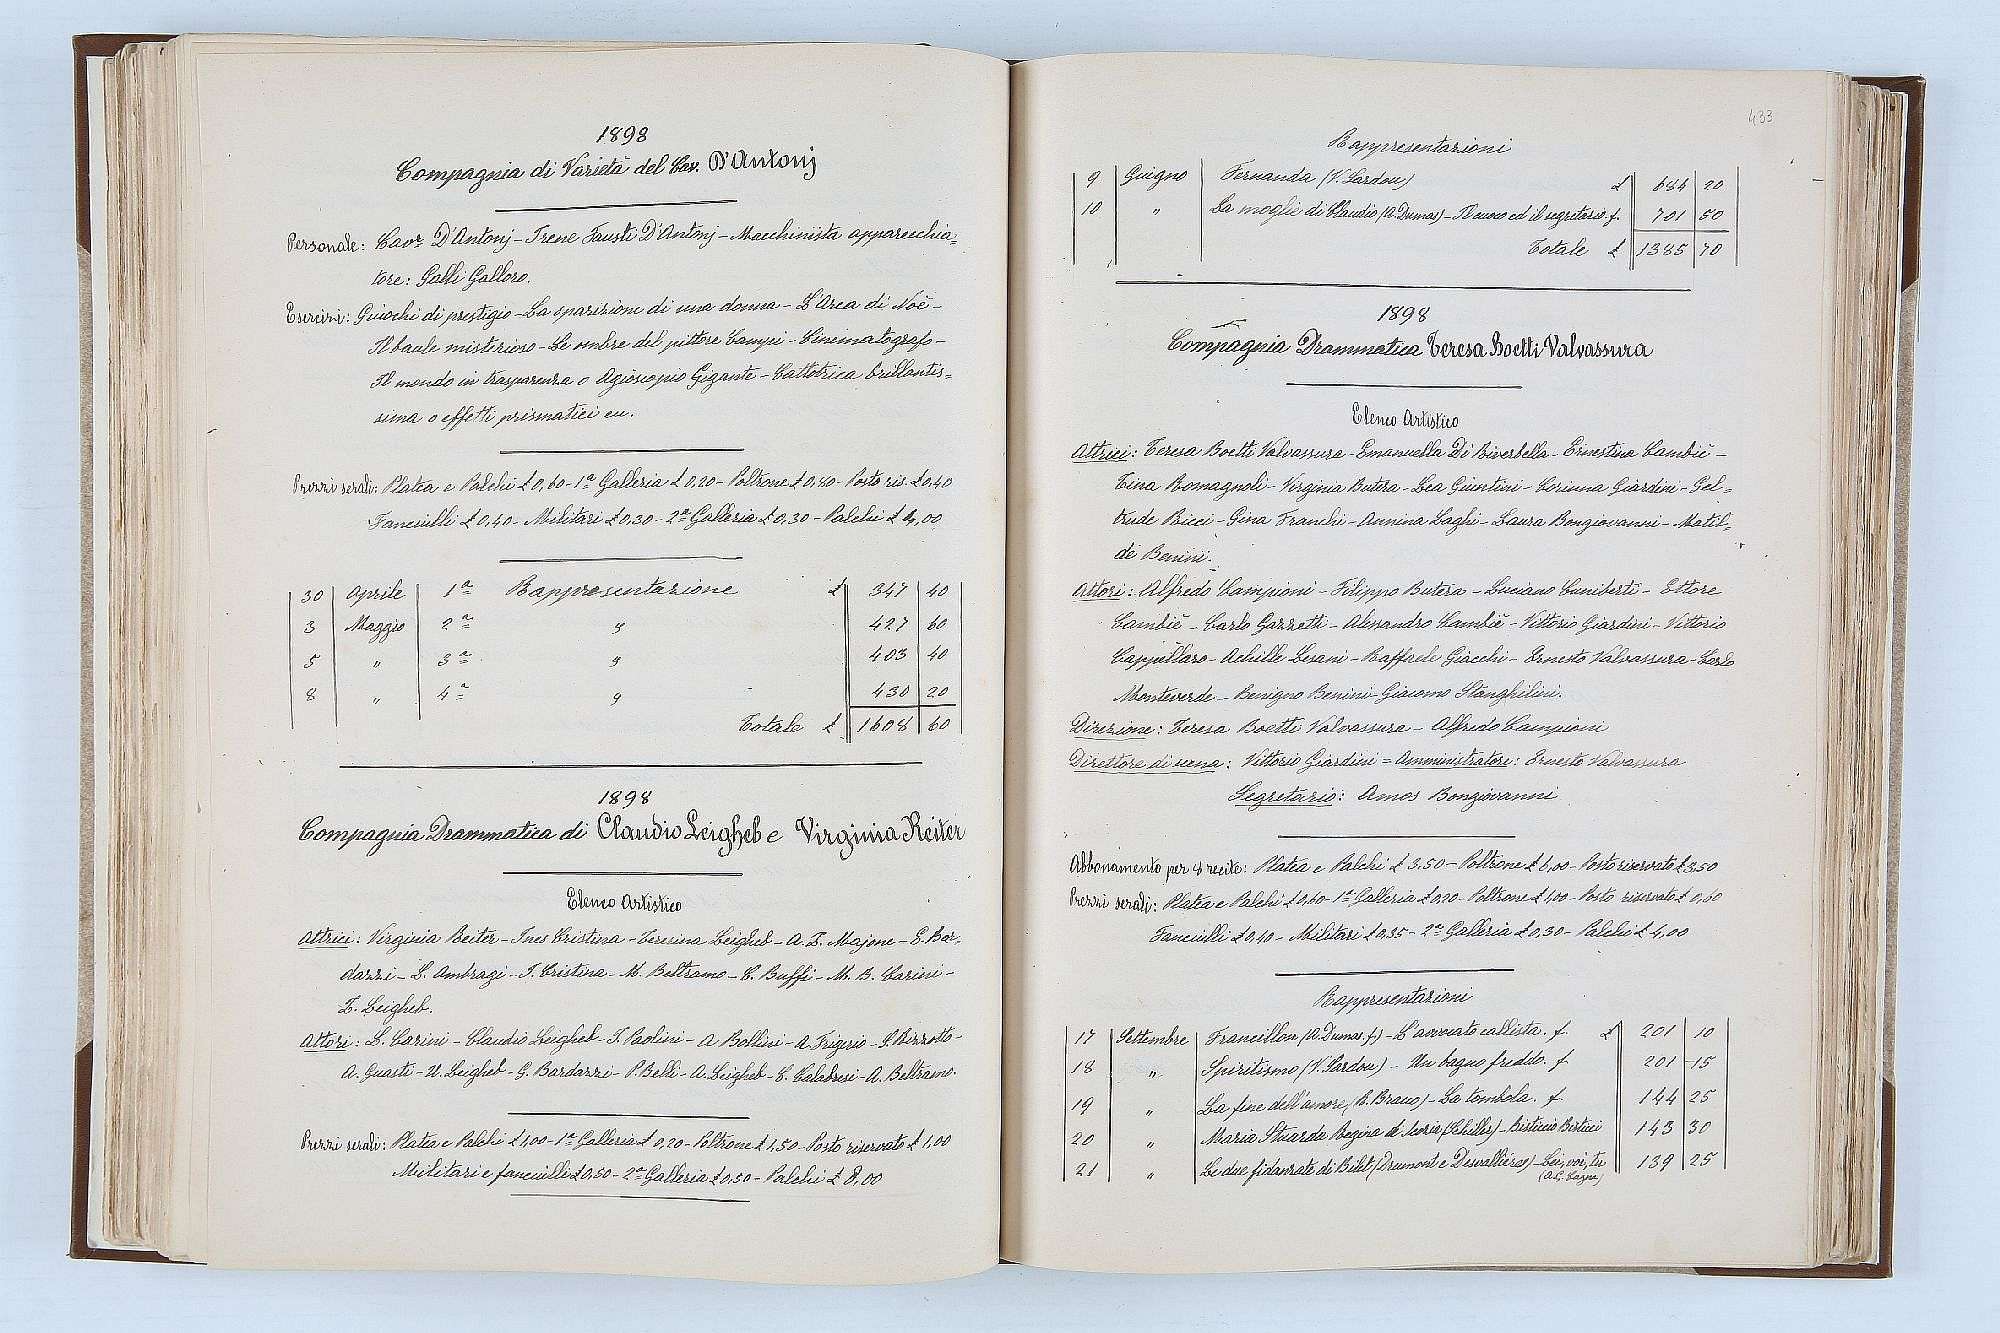 1898
Compagnia di Varietà del Cav. D'Antonj
Personale: Cavr. D'Antonj - Irene Fausti D'Antonj - Macchinista apparecchia=
tore: Galli Galloro.
Esercizi: Giuochi di prestigio - La sparizione di una donna - L'Arca di Noè -
Il baule misterioso - Le ombre del pittore Campi - Cinematografo -
Il mondo in trasparenza o Agioscopio Gigante - Cattotrica brillantis=
sima o effetti prismatici ecc.
Prezzi serali: Platea e Palchi £ 0,60 - 1a Galleria £ 0,20 - Poltrone £ 0,80 - Posto ris. £ 0,40
Fanciulli £ 0,40 - Militari £ 0,30 - 2a Galleria £ 0,30 - Palchi £ 4,00
30 Aprile 1a Rappresentazione £ 347 40
3 Maggio 2a " 427 60
5 " 3a " 403 40
8 " 4a " 430 20
Totale £ 1608 60
1898
Compagnia Drammatica di Claudio Leigheb e Virginia Reiter
Elenco Artistico
Attrici: Virginia Reiter - Ines Cristina - Teresina Leigheb - A. I. Majone - E. Bar=
dazzi - L. Ambragi - I. Cristina - M. Beltramo - C. Buffi - M. B. Carini -
I. Leigheb.
Attori: L. Carini - Claudio Leigheb - F. Paolini - A. Bollini - A. Frigerio - G. Rizzotto -
A. Guasti - U. Leigheb - G. Bardazzi - P. Belli - A. Leigheb - E. Calabresi - A. Beltramo.
Prezzi serali: Platea e Palchi £ 1,00 - 1a Galleria £ 0,20 - Poltrone £ 1,50 - Posto riservato £ 1,00
Militari e fanciulli £ 0,50 - 2a Galleria £ 0,50 - Palchi £ 8,00
433
Rappresentazioni
9 Giugno Fernanda (V. Sardou) £ 684 20
10 " La moglie di Claudio (A. Dumas) - Il cuoco ed il segretario. f. 701 50
Totale £ 1385 70
1898
Compagnia Drammatica Teresa Boetti Valvassura
Elenco Artistico
Attrici: Teresa Boetti Valvassura - Emanuella Di Riverbella - Ernestina Cambiè -
Tina Romagnoli - Virginia Butera - Lea Giuntini - Corinna Giardini - Gel=
trude Ricci - Gina Franchi - Annina Laghi - Laura Bongiovanni - Matil=
de Benini.
Attori: Alfredo Campioni - Filippo Butera - Luciano Cuniberti - Ettore
Cambiè - Carlo Gazzetti - Alessandro Cambiè - Vittorio Giardini - Vittorio
Cappellaro - Achille Lesani - Raffaele Giacchi - Ernesto Valvassura - Carlo
Monteverde - Benigno Benini - Giacomo Stanghilini.
Direzione: Teresa Boetti Valvassura - Alfredo Campioni
Direttore di scena: Vittorio Giardini = Amministratore: Ernesto Valvassura
Segretario: Amos Bongiovanni
Abbonamento per 8 recite: Platea e Palchi £ 3,50 - Poltrone £ 6,00 - Posto riservato £ 3,50
Prezzi serali: Platea e Palchi £ 0,60 - 1a Galleria £ 0,20 - Poltrone £ 1,00 - Posto riservato £ 0,60
Fanciulli £ 0,40 - Militari £ 0,35 - 2a Galleria £ 0,30 - Palchi £ 4,00
Rappresentazioni
17 Settembre Francillon (A. Dumas. f.) - L'avvocato callista. f. £ 201 10
18 " Spiritismo (V. Sardou) - Un bagno freddo. f. 201 15
19 " La fine dell'amore, (R. Bracco) - La tombola. f. 144 25
20 " Maria Stuarda Regina di Scozia (Schiller) - Bisticcio Bisticci 143 30
21 " Le due fidanzate di Bibit (Drumont e Desvallières) - Lei, voi, tu 139 25
(A. G. Cagna)